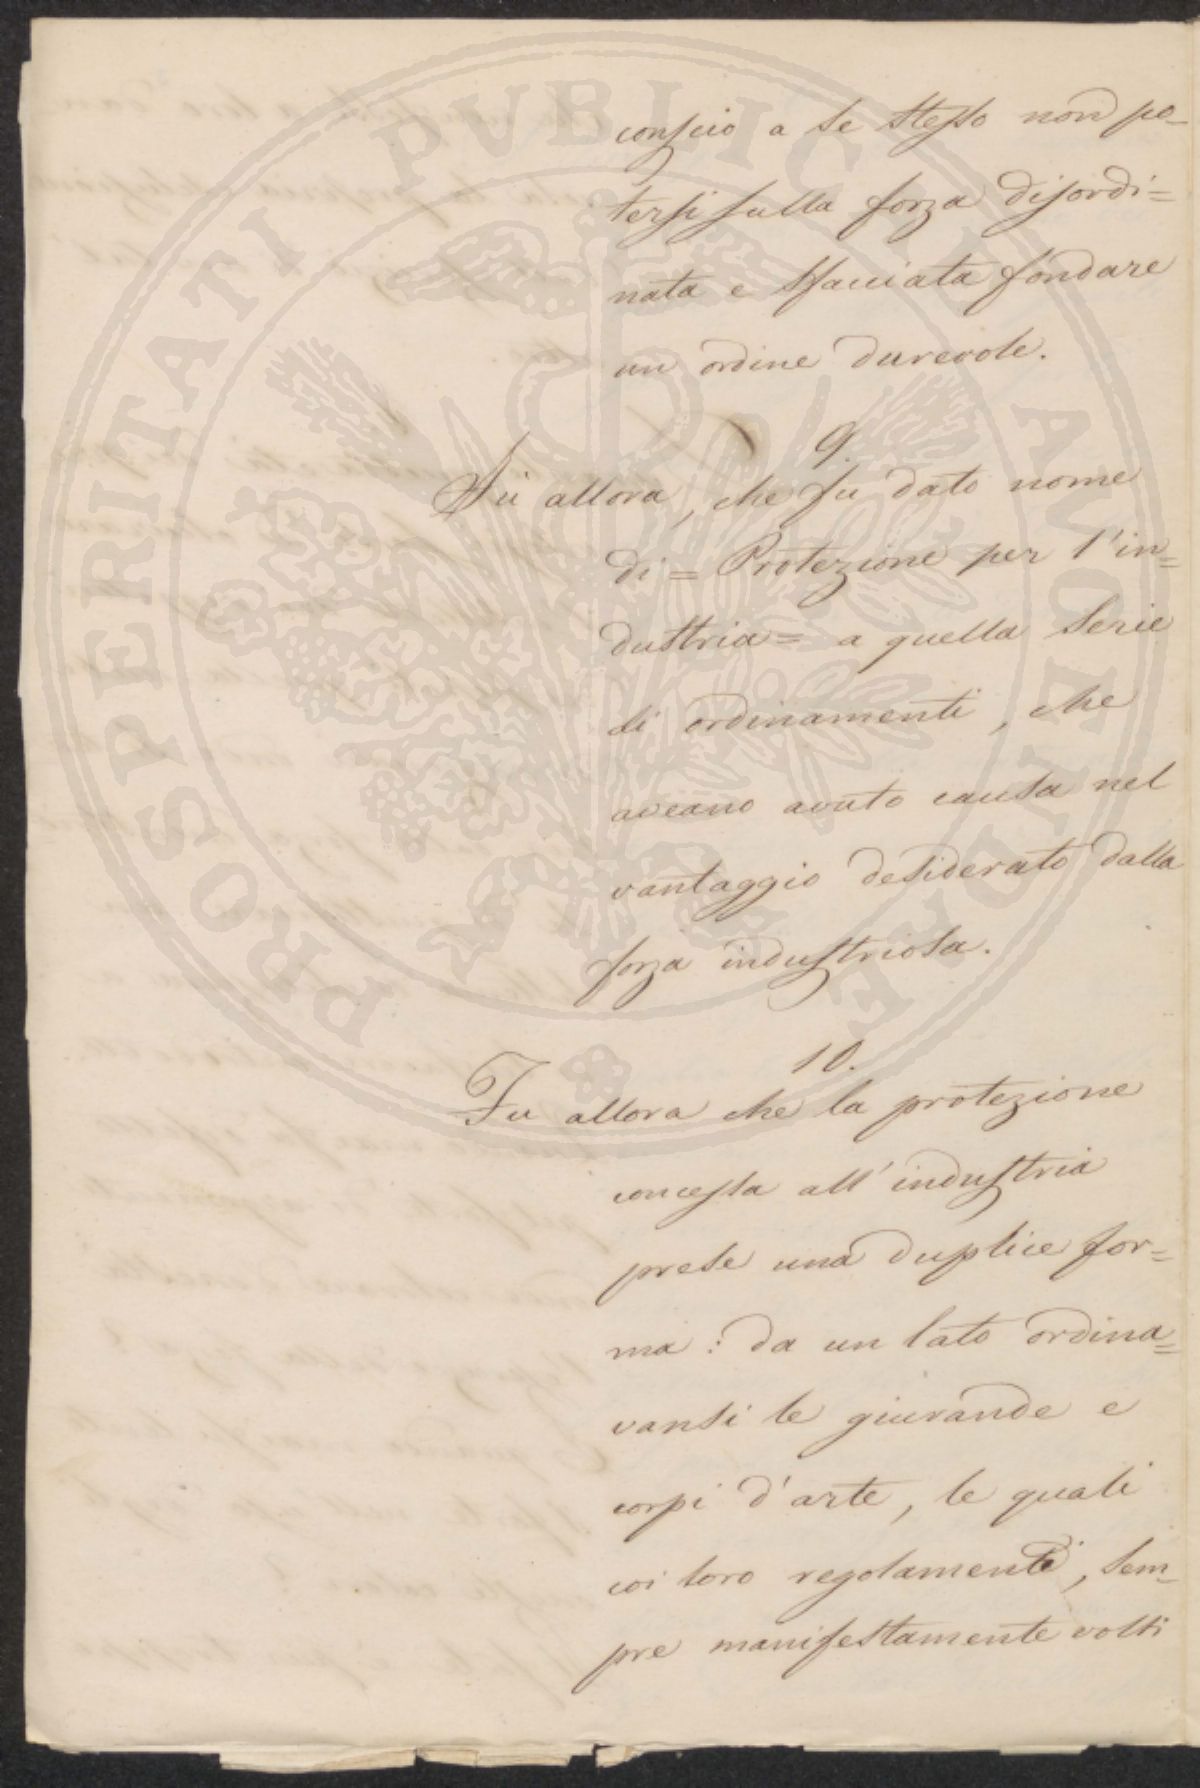 conscio a se stesso non po-
tersi sulla forza disordi=
nata e sfacciata fondare
un ordine durevole.
9.
Fù allora, che fu dato nome
di = Protezione per l'in=
dustria = a quella serie
di ordinamenti, che
aveano avuto causa nel
vantaggio desiderato dalla
forza industriosa.
10.
Fu allora che la protezione
concessa all'industria
prese una duplice for=
ma: da un lato ordina=
vansi le giurande e
corpi d'arte, le quali
coi loro regolamenti, sem=
pre manifestamente volti
PROSPERITATI PVBLICAE AVGENDAE